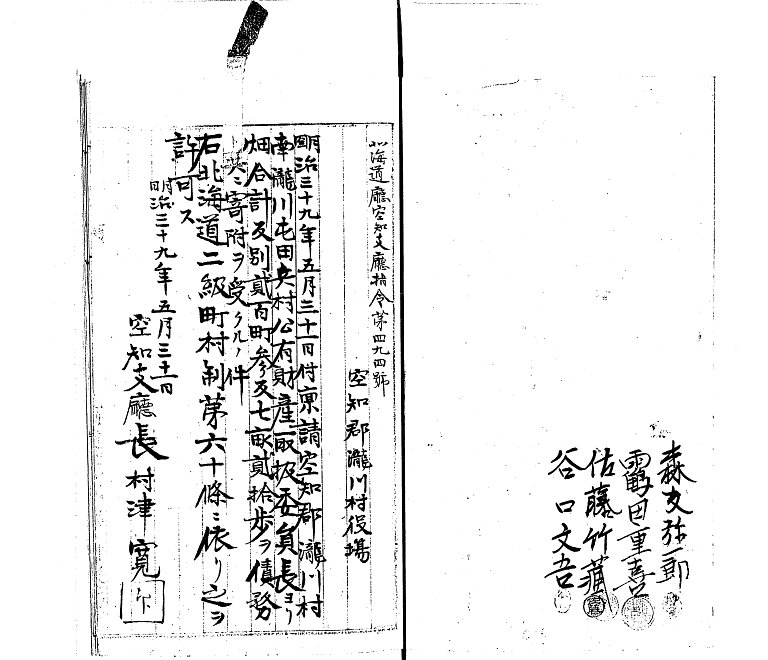 森支弥一郎
霻田重喜
佐藤竹蔵
谷口文吾
北海道廳空知支廳指令第四九四號
空知郡瀧川村役場
明治三十九年五月三十一日付稟請空知郡瀧川村
南瀧川屯田兵村公有財産取扱委員長ヨリ
畑合計反別貳百町参反七畝貳拾歩ヲ債務
共ニ寄附ヲ受クルノ件
右北海道二級町村制第六十條ニ依リ之ヲ
許可ス
明治三十九年五月三十一日
空知支廳長村津寛